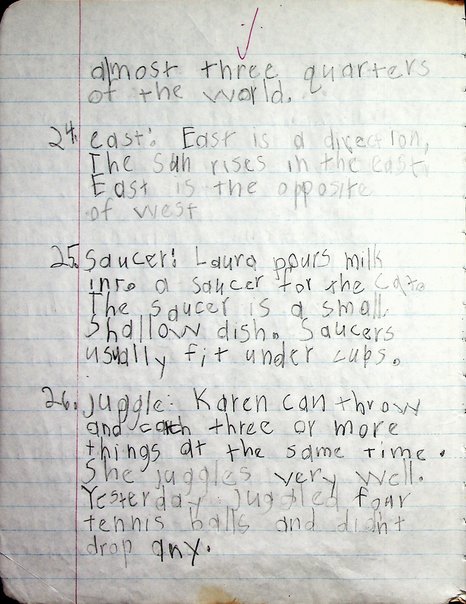 almost three quarters
of the world.
24. east: East is a direction,
The sun rises in the east.
East is the opposite
of west
25. saucer: Laura pours milk
into a saucer for the cat.
The saucer is a small,
shallow dish. Saucers
usually fit under cups.
26. juggle: Karen can throw
and catch three or more
things at the same time.
She juggles very well.
Yesterday juggled four
tennis balls and didn't
drop any.